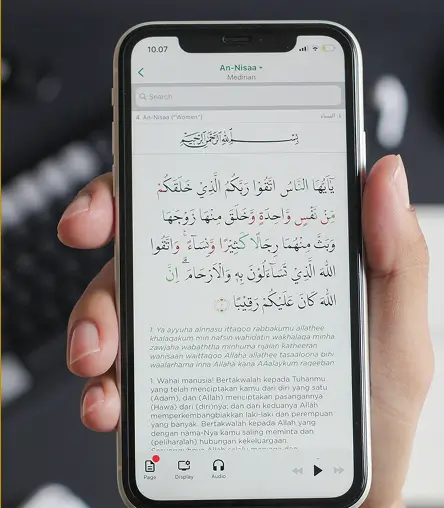 10.07
An-Nisaa
Medinan
Search
4. An-Nisaa ("Women") النساء ٤
بِسْمِ اللَّهِ الرَّحْمَٰنِ الرَّحِيمِ
يٰٓاَيُّهَا النَّاسُ اتَّقُوْا رَبَّكُمُ الَّذِيْ خَلَقَكُمْ
مِّنْ نَّفْسٍ وَّاحِدَةٍ وَّخَلَقَ مِنْهَا زَوْجَهَا
وَبَثَّ مِنْهُمَا رِجَالًا كَثِيْرًا وَّنِسَاۤءً ۚ وَاتَّقُوا
اللّٰهَ الَّذِيْ تَسَاۤءَلُوْنَ بِهٖ وَالْاَرْحَامَ ۗ اِنَّ
اللّٰهَ كَانَ عَلَيْكُمْ رَقِيْبًا
1. Ya ayyuha alnnasu ittaqoo rabbakumu allathee
khalaqakum min nafsin wahidatin wakhalaqa minha
zawjaha wabaththa minhuma rijalan katheeran
wanisaan waittaqoo Allaha allathee tasaaloona bihi
waalarhama inna Allaha kana AAalaykum raqeeban
1. Wahai manusia! Bertakwalah kepada Tuhanmu
yang telah menciptakan kamu dari diri yang satu
(Adam), dan (Allah) menciptakan pasangannya
(Hawa) dari (diri)nya; dan dari keduanya Allah
memperkembangbiakkan laki-laki dan perempuan
yang banyak. Bertakwalah kepada Allah yang
dengan nama-Nya kamu saling meminta dan
(peliharalah) hubungan kekeluargaan.
Page Display Audio